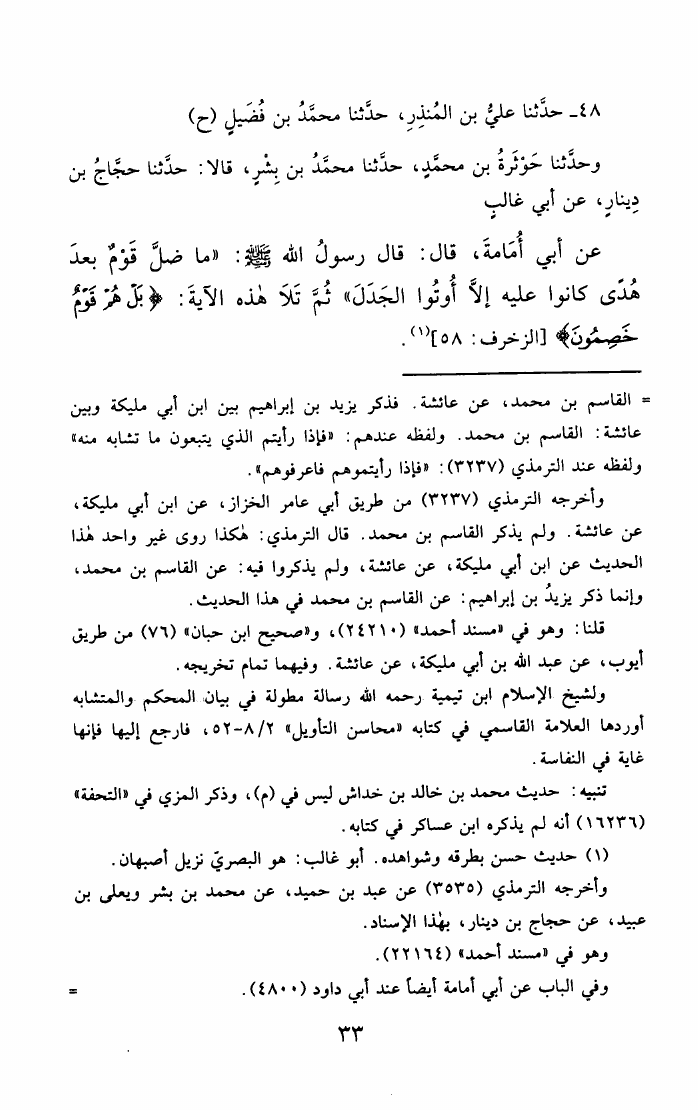 ٤٨ـ حدَّثنا عليُّ بن المُنذِرِ، حدَّثنا محمَّدُ بن فُضَيلٍ (ح)
وحدَّثنا حَوْثَرةُ بن محمَّدٍ، حدَّثنا محمَّدُ بن بِشْرٍ، قالا: حدَّثنا حجَّاجُ بن
دِينارٍ، عن أبي غالبٍ
عن أبي أُمَامةَ، قال: قال رسولُ الله ﷺ: «ما ضلَّ قَوْمٌ بعدَ
هُدًى كانوا عليه إلاَّ أُوتُوا الجَدَلَ» ثُمَّ تَلاَ هٰذه الآيةَ: ﴿بَلْ هُمْ قَوْمٌ
خَصِمُونَ﴾ [الزخرف: ٥٨](١).
= القاسم بن محمد، عن عائشة. فذكر يزيد بن إبراهيم بين ابن أبي مليكة وبين
عائشة: القاسم بن محمد. ولفظه عندهم: «فإذا رأيتم الذي يتبعون ما تشابه منه»
ولفظه عند الترمذي (٣٢٣٧): «فإذا رأيتموهم فاعرفوهم».
وأخرجه الترمذي (٣٢٣٧) من طريق أبي عامر الخزاز، عن ابن أبي مليكة،
عن عائشة. ولم يذكر القاسم بن محمد. قال الترمذي: هٰكذا روى غير واحد هٰذا
الحديث عن ابن أبي مليكة، عن عائشة، ولم يذكروا فيه: عن القاسم بن محمد،
وإنما ذكر يزيدُ بن إبراهيم: عن القاسم بن محمد في هذا الحديث.
قلنا: وهو في «مسند أحمد» (٢٤٢١٠)، و«صحيح ابن حبان» (٧٦) من طريق
أيوب، عن عبد الله بن أبي مليكة، عن عائشة. وفيهما تمام تخريجه.
ولشيخ الإسلام ابن تيمية رحمه الله رسالة مطولة في بيان المحكم والمتشابه
أوردها العلامة القاسمي في كتابه «محاسن التأويل» ٢/ ٨-٥٢، فارجع إليها فإنها
غاية في النفاسة.
تنبيه: حديث محمد بن خالد بن خداش ليس في (م)، وذكر المزي في «التحفة»
(١٦٢٣٦) أنه لم يذكره ابن عساكر في كتابه.
(١) حديث حسن بطرقه وشواهده. أبو غالب: هو البصريّ نزيل أصبهان.
وأخرجه الترمذي (٣٥٣٥) عن عبد بن حميد، عن محمد بن بشر ويعلى بن
عبيد، عن حجاج بن دينار، بهٰذا الإسناد.
وهو في «مسند أحمد» (٢٢١٦٤).
وفي الباب عن أبي أمامة أيضاً عند أبي داود (٤٨٠٠). =
٣٣